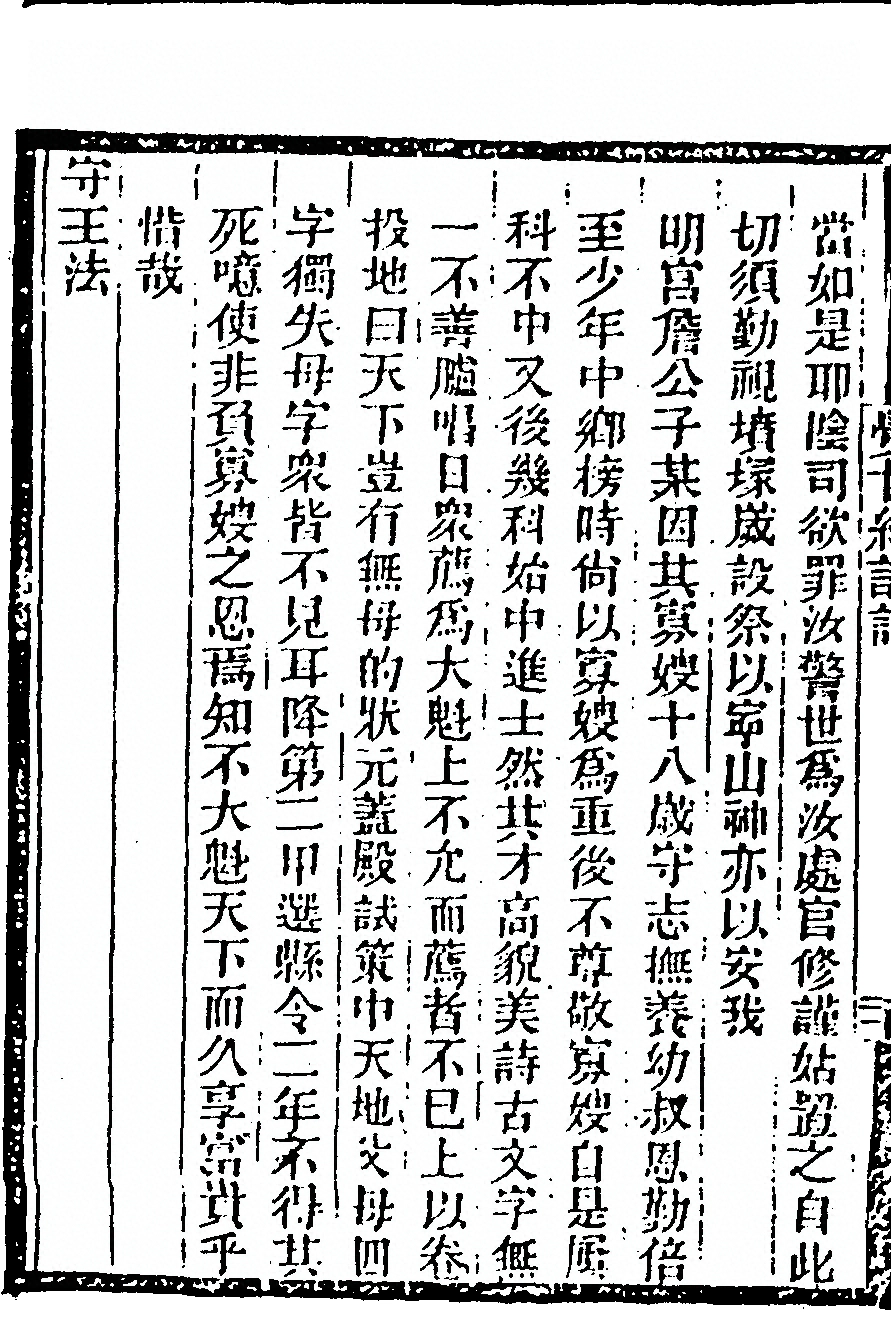 當如是耶陰司欲罪汝警世爲汝處官修謹姑置之自此
切須勤視墳塚歲設祭以寍山神亦以安我
明宮詹公子某因其寡嫂十八歲守志撫養幼叔恩勤倍
至少年中鄉榜時尙以寡嫂爲重後不尊敬寡嫂自是屢
科不中又後幾科始中進士然其才高貌美詩古文字無
一不善臚唱日衆薦爲大魁上不允而薦者不已上以卷
投地曰天下豈有無母的狀元蓋殿試策中天地父母四
字獨失母字衆皆不見耳降第二甲選縣令二年不得其
死噫使非負寡嫂之恩焉知不大魁天下而久享富貴乎
惜哉
守王法